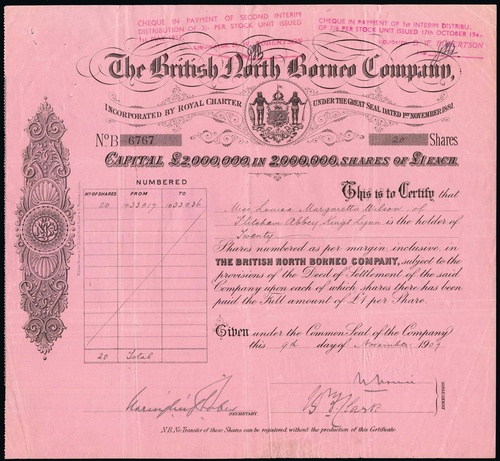 CHEQUE IN PAYMENT OF SECOND INTERIM
DISTRIBUTION OF 3/- PER STOCK UNIT ISSUED
CHEQUE IN PAYMENT OF 1st INTERIM DISTRIBU.
OF 7/6 PER STOCK UNIT ISSUED 17th OCTOBER 194
The British North Borneo Company,
INCORPORATED BY ROYAL CHARTER
UNDER THE GREAT SEAL DATED 1st NOVEMBER 1881
No. B 6767
20 Shares
CAPITAL £2,000,000, IN 2,000,000, SHARES OF £1 EACH.
NUMBERED
No OF SHARES FROM TO
20 1433017 1433036
20 Total
This is to Certify that
Miss Louisa Margaretta Wilson, of
Flitcham Abbey Kings Lynn is the holder of
Twenty
Shares numbered as per margin, inclusive, in
THE BRITISH NORTH BORNEO COMPANY, subject to the
provisions of the Deed of Settlement of the said
Company upon each of which shares there has been
paid the Full amount of £1 per Share.
Given under the Common Seal of the Company
this 9th day of November 1909
SECRETARY.
DIRECTORS
N.B. No Transfer of these Shares can be registered without the production of this Certificate.